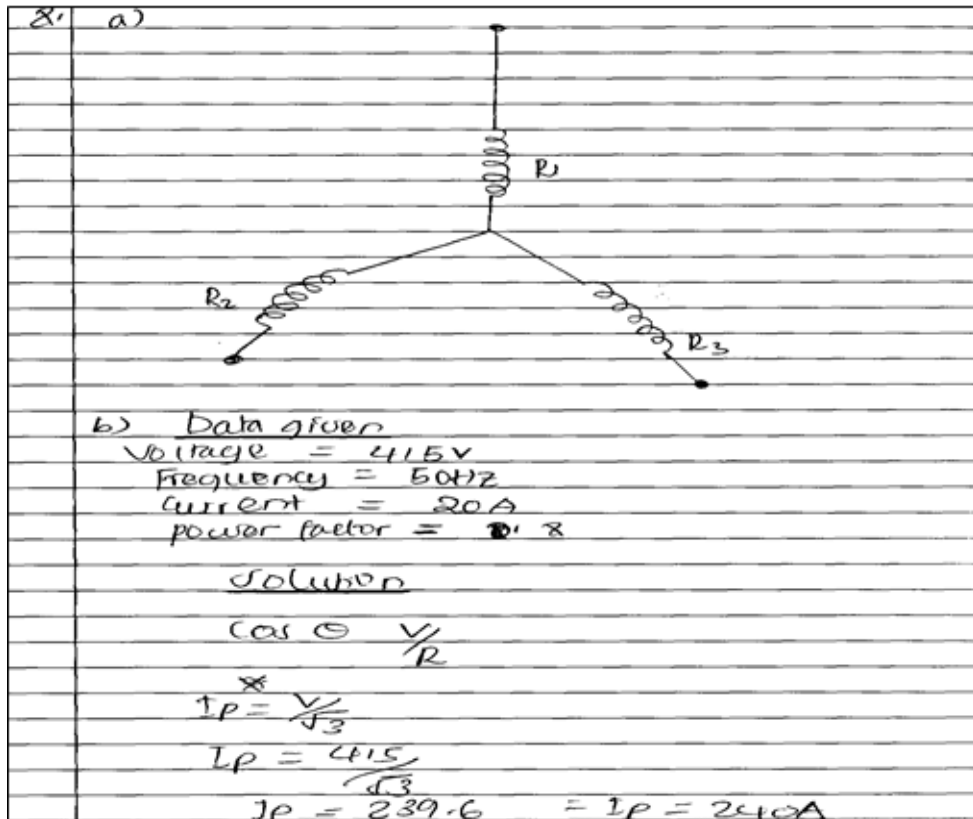 8. a)
R1
R2
R3
b) Data given
Voltage = 415V
Frequency = 50Hz
Current = 20A
power factor = 0.8
Solution
Cos θ V/R
Ip = V/√3
Ip = 415/√3
Ip = 239.6 = Ip = 240A